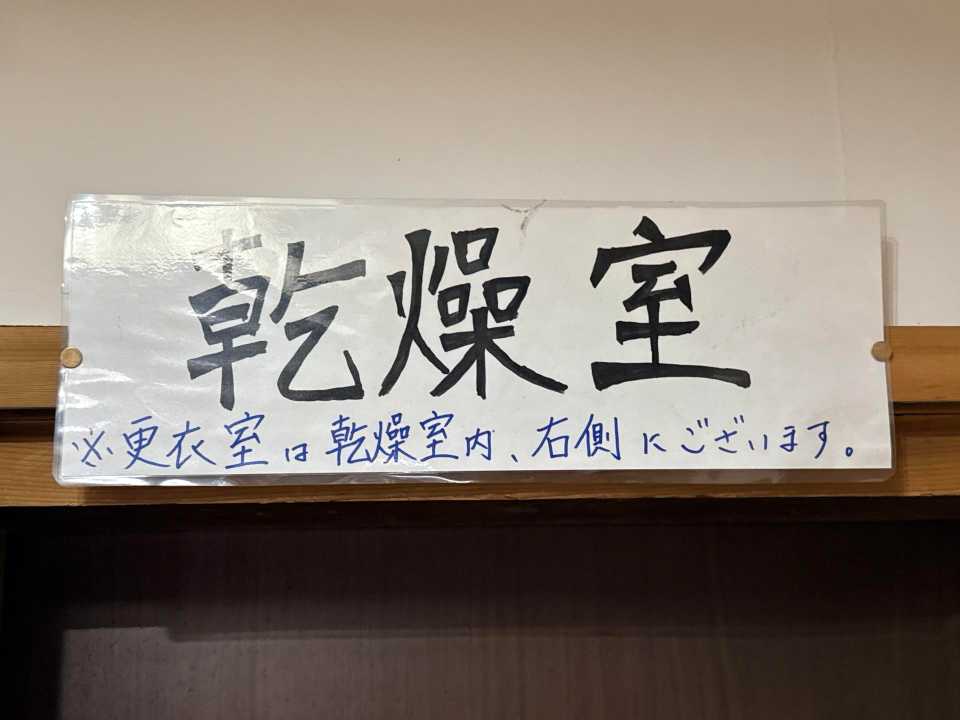 乾燥室
※更衣室は乾燥室内、右側にございます。